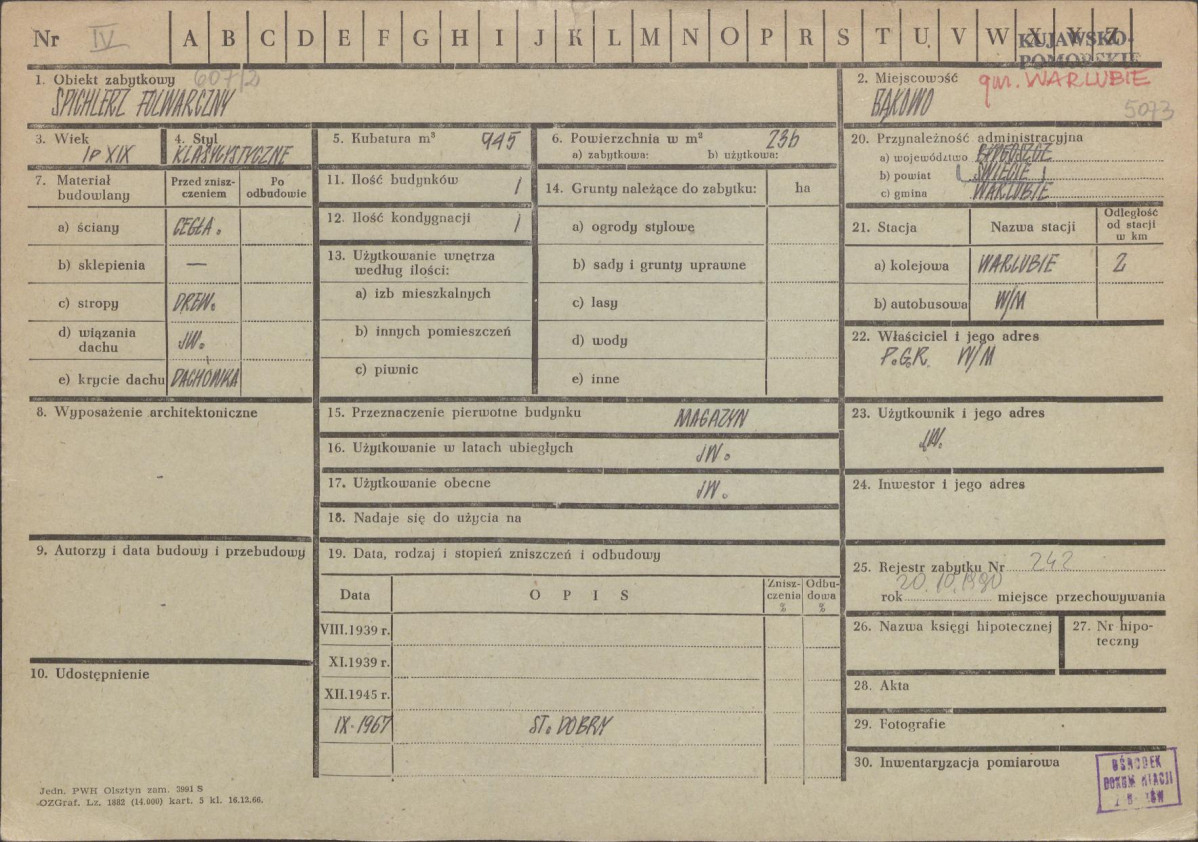 Nr IV A B C D E F G H I J K L M N O P R S T U V W X Y Z
KUJAWSKO-
POMORSKIE
1. Obiekt zabytkowy 607/2
SPICHLERZ FOLWARCZNY
2. Miejscowość gm. WARLUBIE
BĄKOWO 5073
3. Wiek
IP XIX
4. Styl
KLASYCYSTYCZNE
5. Kubatura m³ 945
6. Powierzchnia w m² 236
a) zabytkowa: b) użytkowa:
7. Materiał budowlany
Przed zniszczeniem
Po odbudowie
a) ściany CEGŁA.
b) sklepienia —
c) stropy DREW.
d) wiązania dachu JW.
e) krycie dachu DACHÓWKA
8. Wyposażenie architektoniczne
-
9. Autorzy i data budowy i przebudowy
-
10. Udostępnienie
11. Ilość budynków 1
12. Ilość kondygnacji 1
13. Użytkowanie wnętrza
według ilości:
a) izb mieszkalnych
b) innych pomieszczeń
c) piwnic
14. Grunty należące do zabytku: ha
a) ogrody stylowe
b) sady i grunty uprawne
c) lasy
d) wody
e) inne
15. Przeznaczenie pierwotne budynku MAGAZYN
16. Użytkowanie w latach ubiegłych JW.
17. Użytkowanie obecne JW.
18. Nadaje się do użycia na
19. Data, rodzaj i stopień zniszczeń i odbudowy
Data OPIS Zniszczenia % Odbudowa %
VIII.1939 r.
XI.1939 r.
XII.1945 r.
IX-1967 ST. DOBRY
20. Przynależność administracyjna
a) województwo BYDGOSZCZ
b) powiat (ŚWIECIE)
c) gmina WARLUBIE
21. Stacja Nazwa stacji Odległość od stacji w km
a) kolejowa WARLUBIE 2
b) autobusowa W/M
22. Właściciel i jego adres
P.G.R. W/M
23. Użytkownik i jego adres
JW.
24. Inwestor i jego adres
25. Rejestr zabytku Nr 242
rok 20.10.1990 miejsce przechowywania
26. Nazwa księgi hipotecznej
27. Nr hipoteczny
28. Akta
29. Fotografie
30. Inwentaryzacja pomiarowa
OŚRODEK
Jedn. PWH Olsztyn zam. 3991 S
OZGraf. Lz. 1882 (14.000) kart. 5 kl. 16.12.66.